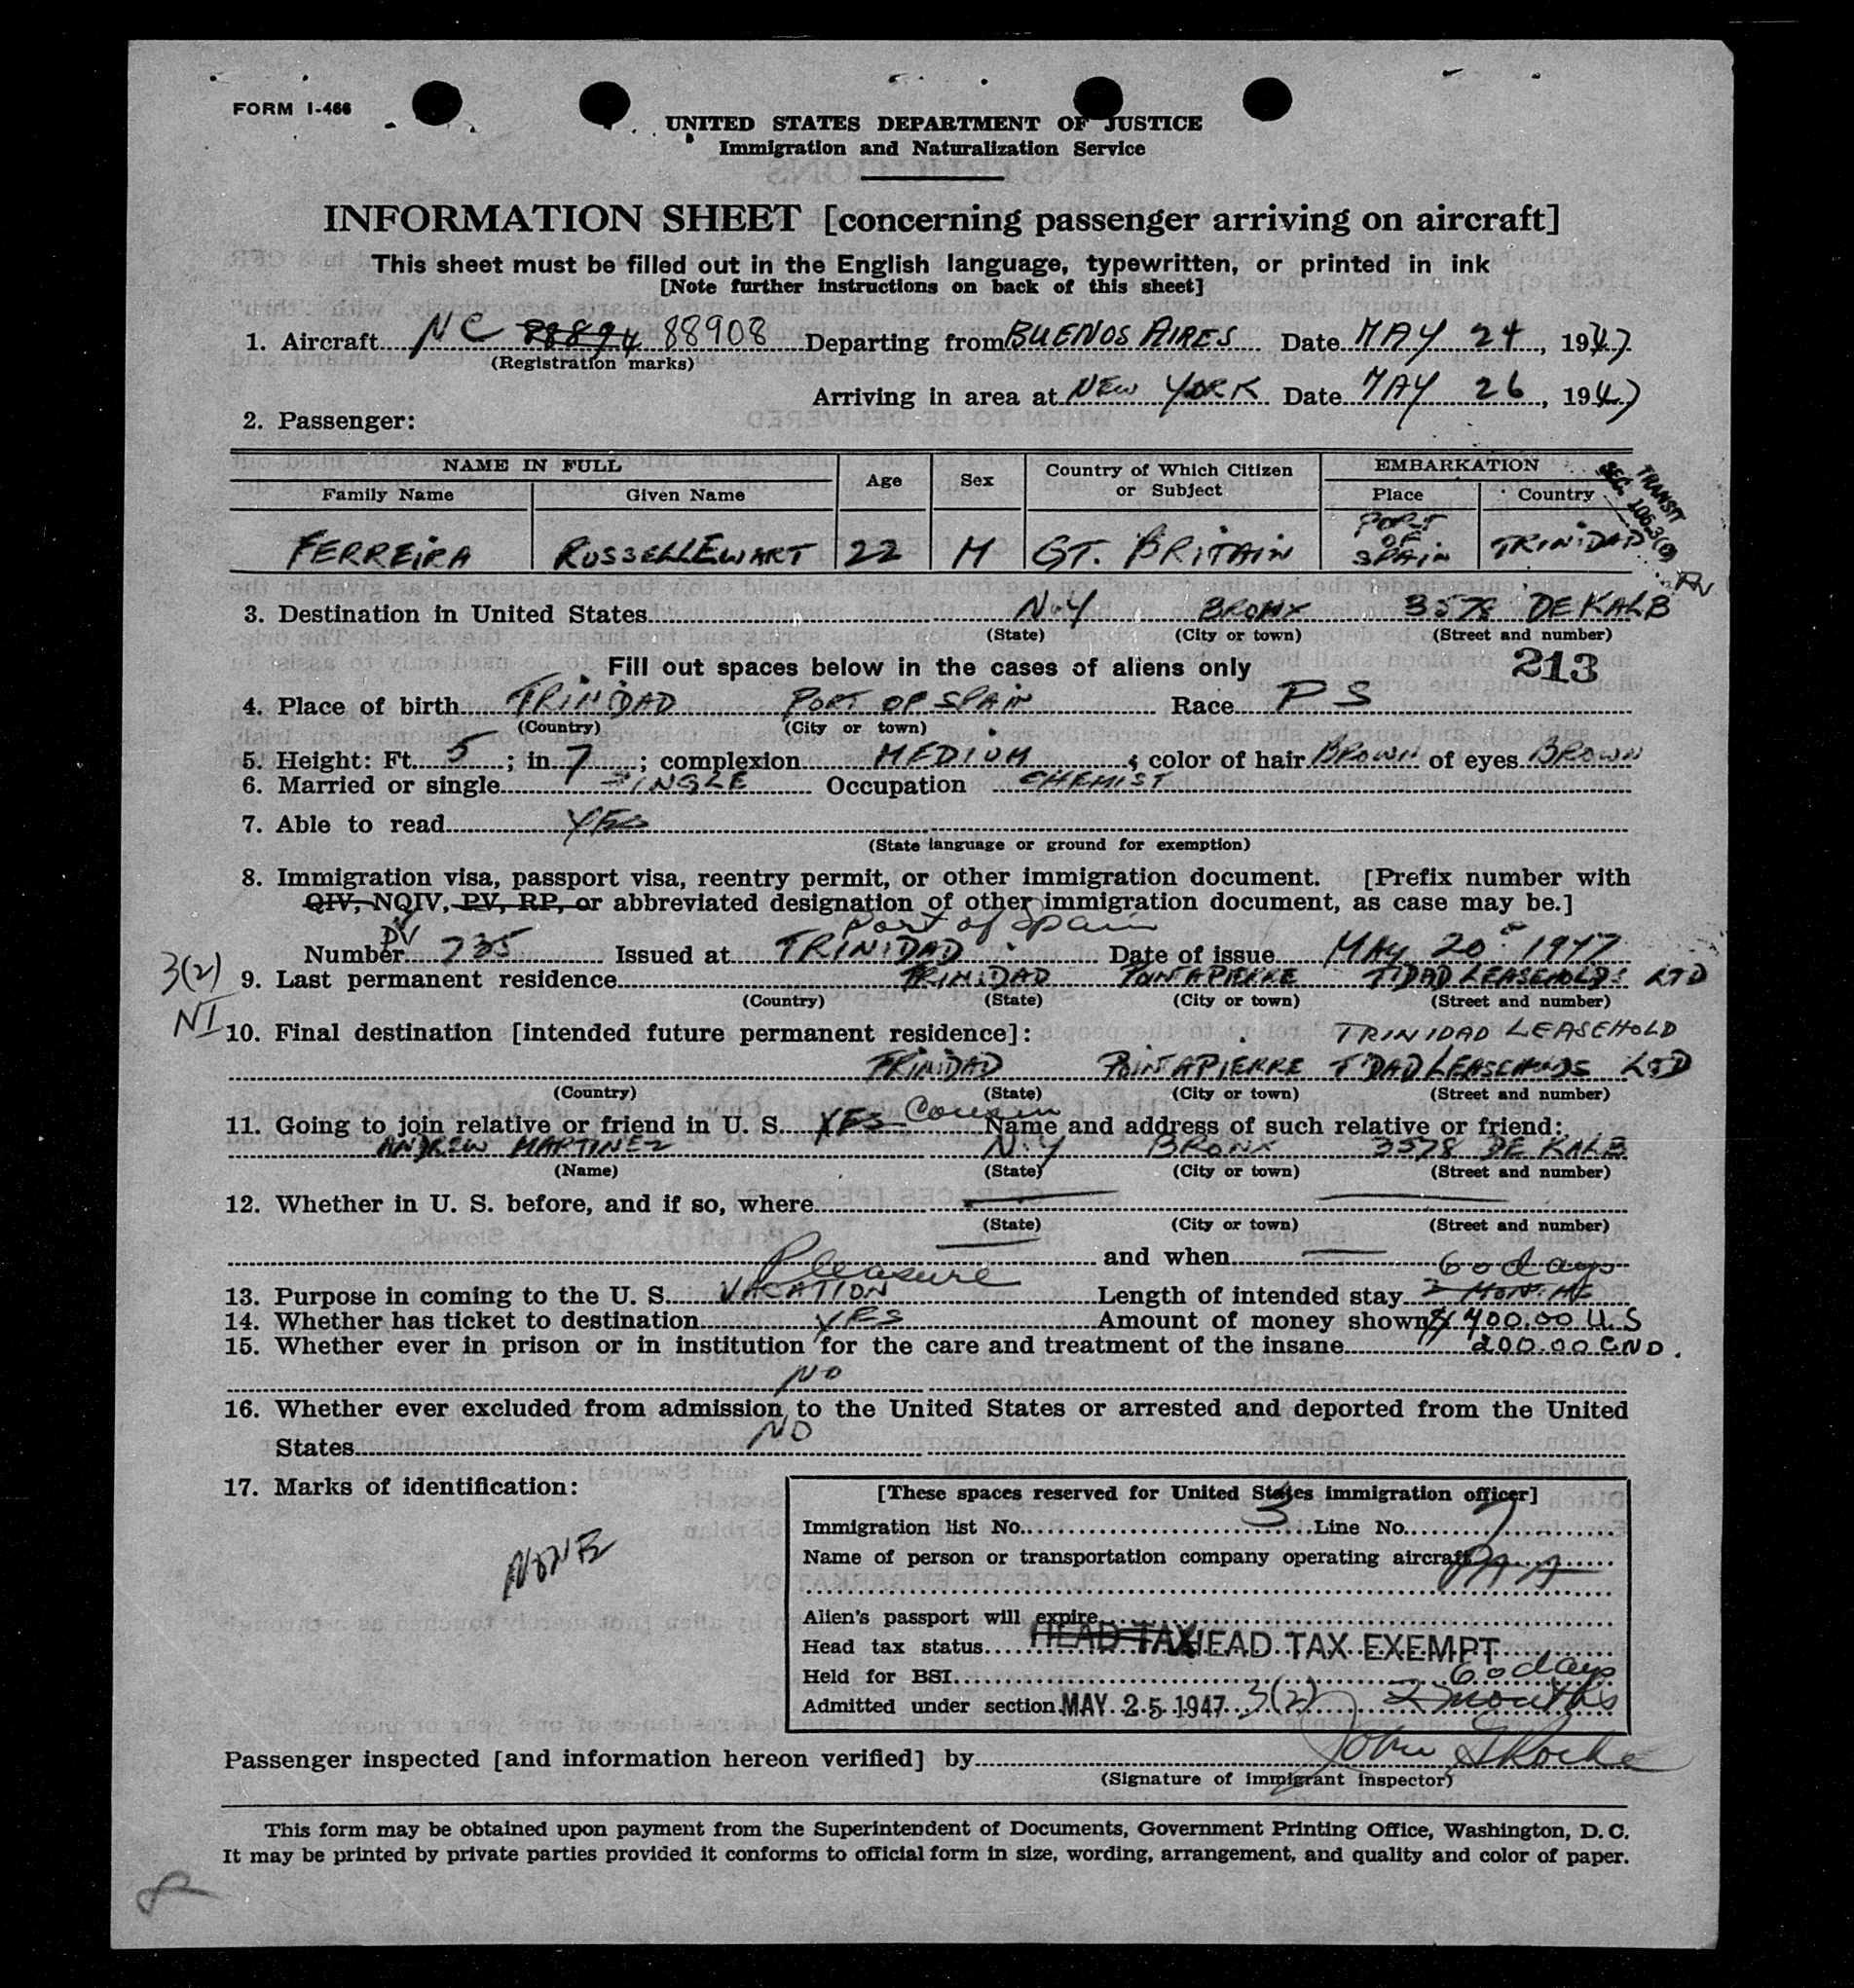 FORM I-466
UNITED STATES DEPARTMENT OF JUSTICE
Immigration and Naturalization Service
INFORMATION SHEET [concerning passenger arriving on aircraft]
This sheet must be filled out in the English language, typewritten, or printed in ink
[Note further instructions on back of this sheet]
1. Aircraft NC 88894 88908 Departing from BUENOS AIRES Date MAY 24, 1947
(Registration marks)
Arriving in area at NEW YORK Date MAY 26, 1947
2. Passenger:
NAME IN FULL Age Sex Country of Which Citizen or Subject EMBARKATION
Family Name Given Name Place Country
TRANSIT
SEC. 106.3(
FERREIRA RUSSELL EWART 22 M GT. BRITAIN PORT OF SPAIN TRINIDAD
3. Destination in United States N.Y BRONX 3578 DE KALB
(State) (City or town) (Street and number)
Fill out spaces below in the cases of aliens only 213
4. Place of birth TRINIDAD PORT OF SPAIN Race PS
(Country) (City or town)
5. Height: Ft. 5; in 7; complexion MEDIUM; color of hair BROWN of eyes BROWN
6. Married or single SINGLE Occupation CHEMIST
7. Able to read YES
(State language or ground for exemption)
8. Immigration visa, passport visa, reentry permit, or other immigration document. [Prefix number with
QIV, NQIV, PV, RP, or abbreviated designation of other immigration document, as case may be.]
Port of Spain
Number PV 735 Issued at TRINIDAD Date of issue MAY 20 1947
3(2)
NI
9. Last permanent residence TRINIDAD POINTAPIERRE T'DAD LEASEHOLDS LTD
(Country) (State) (City or town) (Street and number)
10. Final destination [intended future permanent residence]: TRINIDAD LEASEHOLD
TRINIDAD POINTAPIERRE T'DAD LEASEHOLDS LTD
(Country) (State) (City or town) (Street and number)
11. Going to join relative or friend in U. S. YES Cousin Name and address of such relative or friend:
ANDREW MARTINEZ N.Y BRONX 3578 DE KALB
(Name) (State) (City or town) (Street and number)
12. Whether in U. S. before, and if so, where
(State) (City or town) (Street and number)
and when
Pleasure 60 days
13. Purpose in coming to the U. S. VACATION Length of intended stay 2 MONTHS
14. Whether has ticket to destination YES Amount of money shown $400.00 U.S
15. Whether ever in prison or in institution for the care and treatment of the insane 200.00 CND.
NO
16. Whether ever excluded from admission to the United States or arrested and deported from the United
States NO
17. Marks of identification:
NONE
[These spaces reserved for United States immigration officer]
Immigration list No. 3 Line No. 7
Name of person or transportation company operating aircraft PAA
Alien's passport will expire
Head tax status HEAD TAX HEAD TAX EXEMPT
Held for BSI 60 days
Admitted under section MAY 25 1947 3(2) 2 months
Passenger inspected [and information hereon verified] by John
(Signature of immigrant inspector)
This form may be obtained upon payment from the Superintendent of Documents, Government Printing Office, Washington, D. C.
It may be printed by private parties provided it conforms to official form in size, wording, arrangement, and quality and color of paper.